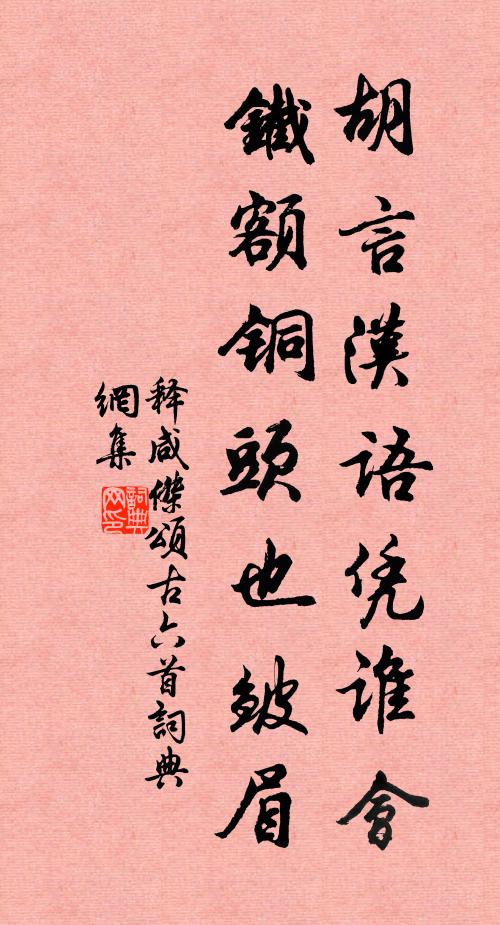 胡言漢語凭誰會
鐵額铜頭也皴眉
释咸傑頌古六首詞典
網集
詞典网印